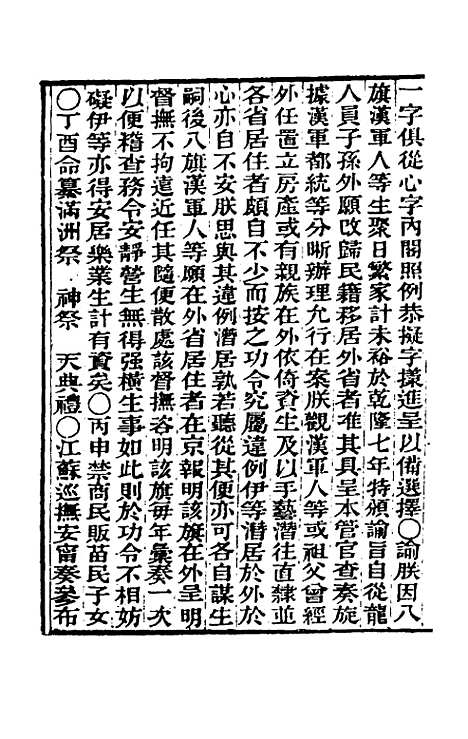 一字俱從心字內閣照例恭擬字樣進呈以備選擇〇諭朕因八
旗漢軍人等生聚日繁家計未裕於乾隆七年特頒諭旨自從龍
人員子孫外願改歸民籍移居外省者准其具呈本管官查奏旋
據漢軍都統等分晰辦理允行在案朕觀漢軍人等或祖父曾經
外任置立房產或有親族在外依倚資生及以手藝潛往直隸並
各省居住者頗自不少而按之功令究屬違例伊等潛居於外於
心亦自不安朕思與其違例潛居孰若聽從其便亦可各自謀生
嗣後八旗漢軍人等願在外省居住者在京報明該旗在外呈明
督撫不拘遠近任其隨便散處該督撫咨明該旗每年彙奏一次
以便稽查務令安靜營生無得强橫生事如此則於功令不相妨
礙伊等亦得安居樂業生計有資矣〇丙申禁商民販苗民子女
〇丁酉命纂滿洲祭 神祭 天典禮〇江蘇巡撫安甯奏參布